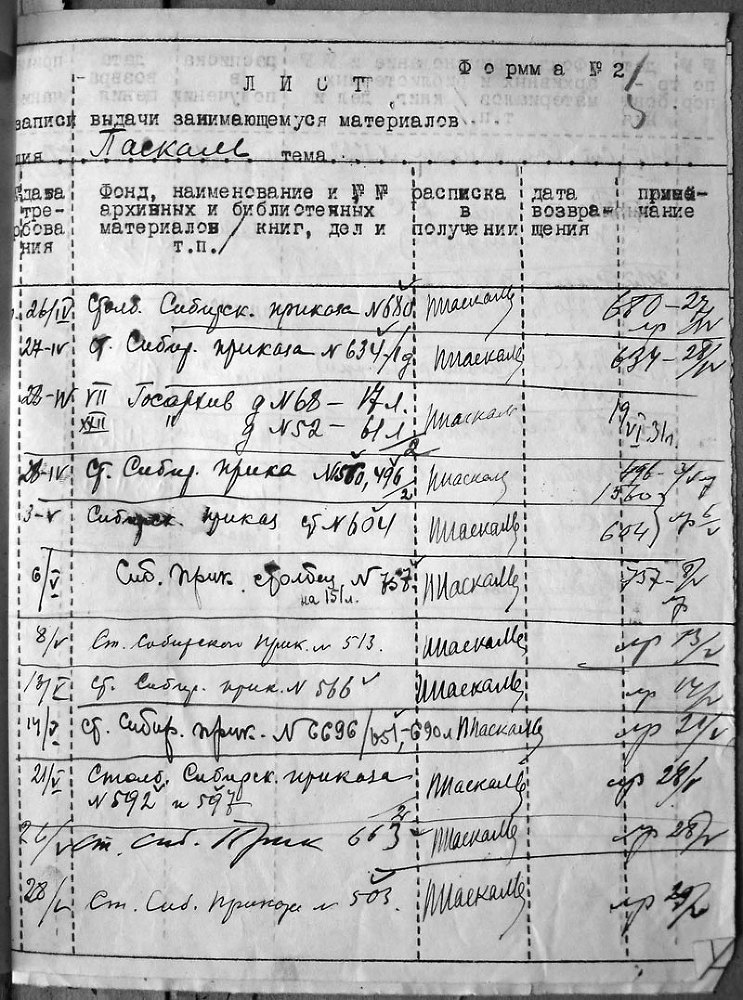 Формма № 2
ЛИСТ
записи выдачи занимающемуся материалов
ция Паскаль тема
дата требования
Фонд, наименование и №№ архивных и библиотечных материалов / книг, дел и т.п./
расписка в получении
дата возвращения
примечание
26/IV Столб. Сибирск. приказа N 680 ППаскаль 680 – 27/IV
27-IV ст. Сибир. приказа N 634/1д ППаскаль 634 – 28/IV
28-IV VII Госархив д N 68 – 17 л. ППаскаль 19/VI 31 г.
XXII " д N 52 – 61 л.
2
28-IV ст. Сибир. прика N 560, 496 ППаскаль 496 –
2 1560
3-V Сибирск. приказ ст N 604 ППаскаль 604 пр 6/V
6/V Сиб. прик. столбец N 757 ППаскаль 757 – 8/V
на 151 л. пр
8/V Ст. Сибирского прик. N 513. ППаскаль пр 13/V
13/V ст. Сибир. прик. N 566 ППаскаль пр 14/V
14/V ст. Сибир. прик. N 6696/651,–690 л ППаскаль пр 21/V
21/V Столб. Сибирск. приказа ППаскаль пр 28/V
N 592 и 597
2
26/V ст. Сиб. Прик 663 ППаскаль пр 28/V
28/V Ст. Сиб. приказа N 503. ППаскаль пр 29/V